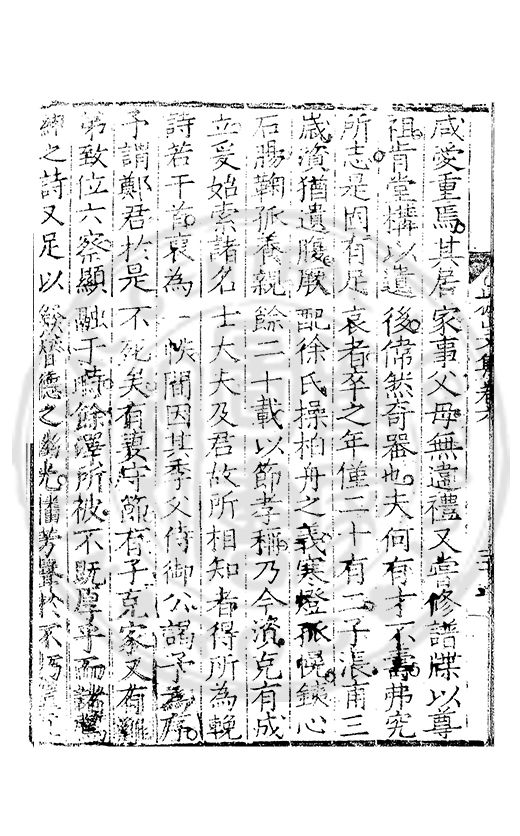 咸愛重焉其居家事父母無違禮又嘗修譜牒以尊
祖肯堂構以遺後偉然奇器也夫何有才不壽弗究
所志是固有足哀者卒之年僅二十有二子漲甫三
歲濱猶遺腹厥配徐氏操柏舟之義寒燈孤幌鐵心
石腸鞠孤養親餘二十載以節孝稱乃今濱克有成
立爰始索諸名士大夫及君故所相知者得所為輓
詩若干首裒為一帙間因其季父侍御公謁予為序
予謂鄭君於是不死矣有妻守節有子克家又有難
弟致位六察顯融于時餘澤所被不既厚乎而諸
紳之詩又足以發潛德之幽光播芳聲於不